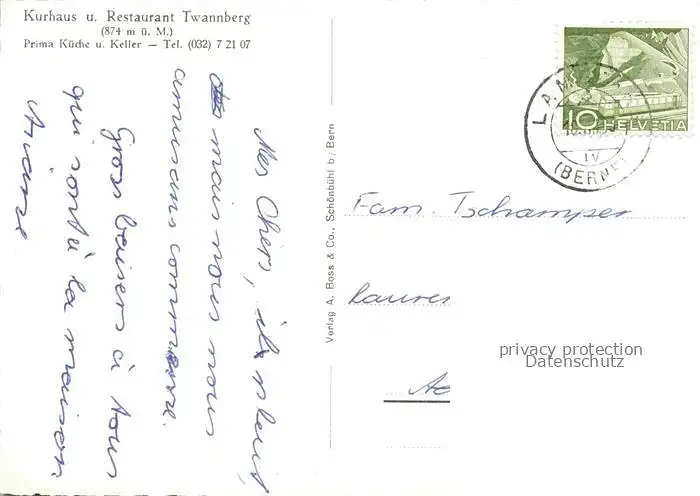 Kurhaus u. Restaurant Twannberg
(874 m ü. M.)
Prima Küche u. Keller — Tel. (032) 7 21 07
Mes Chers, il pleut
mais nous nous
amusons comme
Gros baisers à tous
qui sont à la maison
Verlag A. Boss & Co., Schönbühl b/Bern
10 HELVETIA
IV
(BERNE)
Fam. Tschamper
privacy protection
Datenschutz